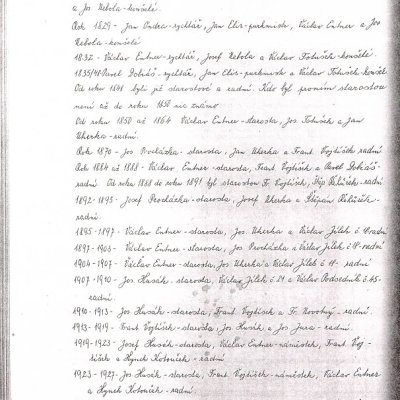 a Jos Nebola-konšelé.
Rok 1829 - Jan Ondra-rychtář, Jan Eliš-purkmistr, Václav Entner a Jos
Nebola-konšelé
1832- Václav Entner-rychtář, Josef Nebola a Václav Fotušek-konšelé
1835/48-Pavel Dokáš-rychtář, Jan Eliš-purkmistr a Václav Fotušek-konšelé
Od roku 1848 byli již starostové a radní. Kdo byl prvním starostou
není až do roku 1850 nic známo
Od roku 1850 až 1864 Václav Entner-starosta, Jos. Fotušek a Jan
Uherka-radní.
Rok 1870- Jos Procházka-starosta, Jan Uherka a Frant Vojtíšek radní
Rok 1884 až 1888 - Václav Entner-starosta, Frant Vojtíšek a Pavel Dokáš-
radní. Od roku 1888 do roku 1891 byl starostou Fr. Vojtíšek, -radní
1892-1895- Josef Procházka-starosta, Josef Uherka a Štěpán
radní.
1895-1897- Václav Entner-starosta, Jos. Uherka a Václav Jílek č radní
1897-1903- Václav Entner-starosta, Jos. Procházka a Václav Jílek č 11-radní
1904-1907- Václav Entner-starosta, Jos Uherka a Václav Jílek č 11-radní.
1907-1910- Jos Husák-starosta, Václav Jílek č 21 a Václav Podsedník č.45-
radní.
1910-1913- Jos Husák-starosta, Frant. Vojtíšek a Fr. Novotný-radní.
1913-1919- Frant Vojtíšek-starosta, Jos Husák a Jos Jura-radní.
1919-1923- Josef Husák-starosta, Václav Entner-náměstek, Frant Voj-
tíšek a Hynek Kotouček-radní
1923-1927- Jos Husák-starosta, Frant Vojtíšek-náměstek, Václav Entner
a Hynek Kotouček-radní.